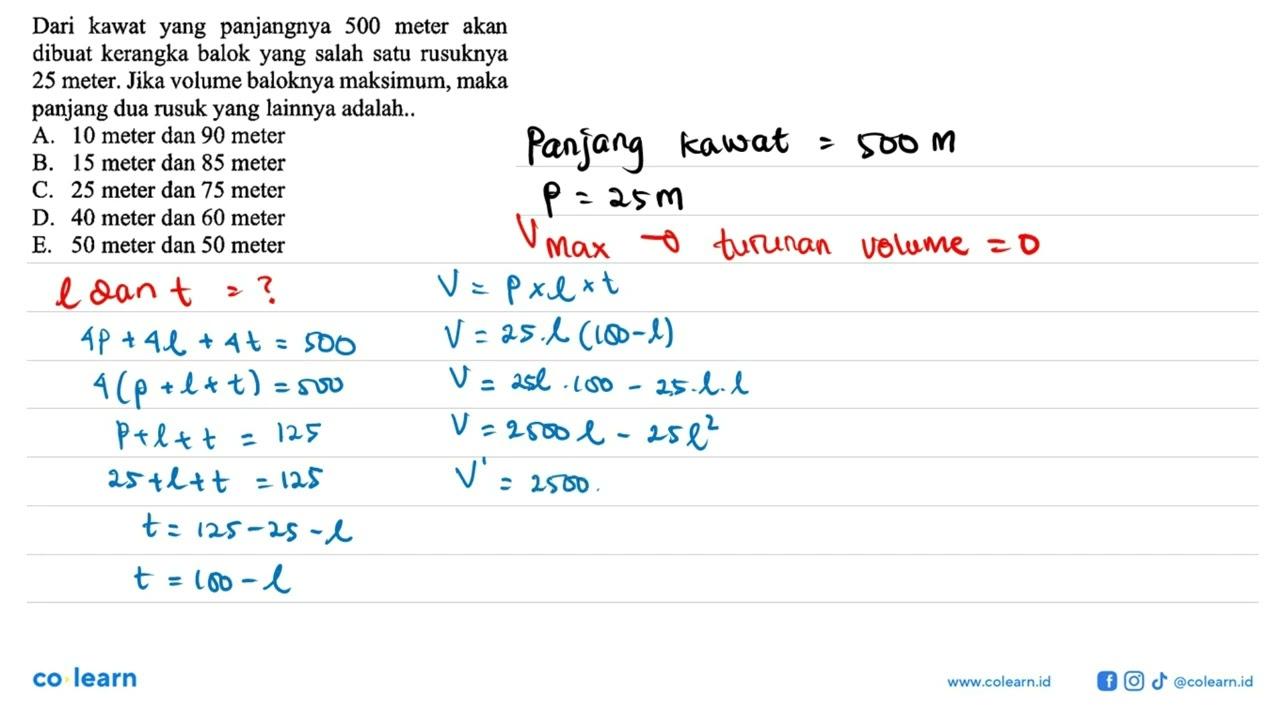 Dari kawat yang panjangnya 500 meter akan
dibuat kerangka balok yang salah satu rusuknya
25 meter. Jika volume baloknya maksimum, maka
panjang dua rusuk yang lainnya adalah..
A. 10 meter dan 90 meter
B. 15 meter dan 85 meter
C. 25 meter dan 75 meter
D. 40 meter dan 60 meter
E. 50 meter dan 50 meter
Panjang kawat = 500 M
P = 25 M
V Max → turunan volume = 0
l dan t = ?
4p + 4l + 4t = 500
4(p + l + t) = 500
p + l + t = 125
25 + l + t = 125
t = 125 - 25 - l
t = 100 - l
V = p x l x t
V = 25 . l (100 - l)
V = 25l . 100 - 25 . l . l
V = 2500 l - 25 l²
V' = 2500.
co learn
www.colearn.id
@colearn.id